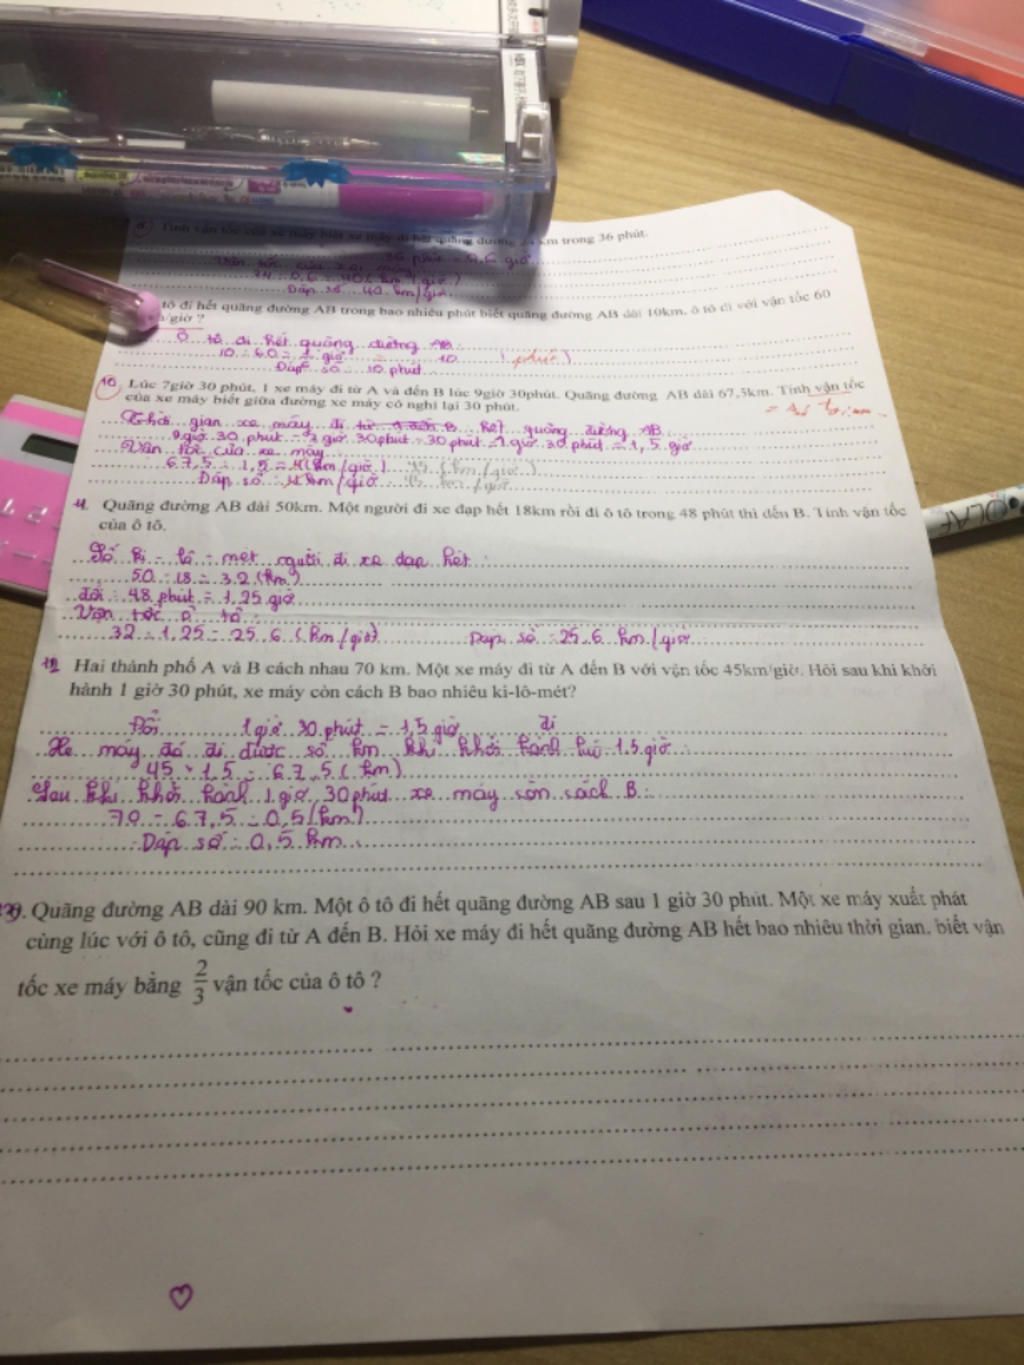 Tính vận tốc của xe máy biết xe máy đi hết quãng đường 24 km trong 36 phút.
36 phút = 0,6 giờ
Vận tốc của xe máy
24 : 0,6 = 40 (km/giờ)
Đáp số : 40 km/giờ
tô đi hết quãng đường AB trong bao nhiêu phút biết quãng đường AB dài 10km, ô tô đi với vận tốc 60
/giờ ?
Ô tô đi hết quãng đường AB
10 : 60 = giờ = 10 (phút)
Đáp số : 10 phút
10, Lúc 7giờ 30 phút, 1 xe máy đi từ A và đến B lúc 9giờ 30phút. Quãng đường AB dài 67,5km. Tính vận tốc
của xe máy biết giữa đường xe máy có nghỉ lại 30 phút.
Thời gian xe máy đi từ A đến B hết quãng đường AB
9 giờ 30 phút - 7 giờ 30 phút - 30 phút = 1 giờ 30 phút = 1,5 giờ
Vận tốc của xe máy
67,5 : 1,5 = (km/giờ) 45 (km/giờ)
Đáp số : km/giờ 45 km/giờ
11. Quãng đường AB dài 50km. Một người đi xe đạp hết 18km rồi đi ô tô trong 48 phút thì đến B. Tính vận tốc
của ô tô.
Số ki - lô - mét người đi xe đạp hết :
50 - 18 = 32 (km)
đổi : 48 phút = 1,25 giờ
Vận tốc ô tô
32 : 1,25 = 25,6 (km/giờ) Đáp số : 25,6 km/giờ
12 Hai thành phố A và B cách nhau 70 km. Một xe máy đi từ A đến B với vận tốc 45km/giờ. Hỏi sau khi khởi
hành 1 giờ 30 phút, xe máy còn cách B bao nhiêu ki-lô-mét?
Đổi 1 giờ 30 phút = 1,5 giờ đi
Xe máy đó đi được số km khi khởi hành 1,5 giờ :
45 × 1,5 = 67,5 (km)
Sau khi khởi hành 1 giờ 30 phút xe máy còn cách B :
70 - 67,5 = 0,5 (km)
Đáp số : 0,5 km
. Quãng đường AB dài 90 km. Một ô tô đi hết quãng đường AB sau 1 giờ 30 phút. Một xe máy xuất phát
cùng lúc với ô tô, cũng đi từ A đến B. Hỏi xe máy đi hết quãng đường AB hết bao nhiêu thời gian, biết vận
tốc xe máy bằng 2/3 vận tốc của ô tô ?
OLAF